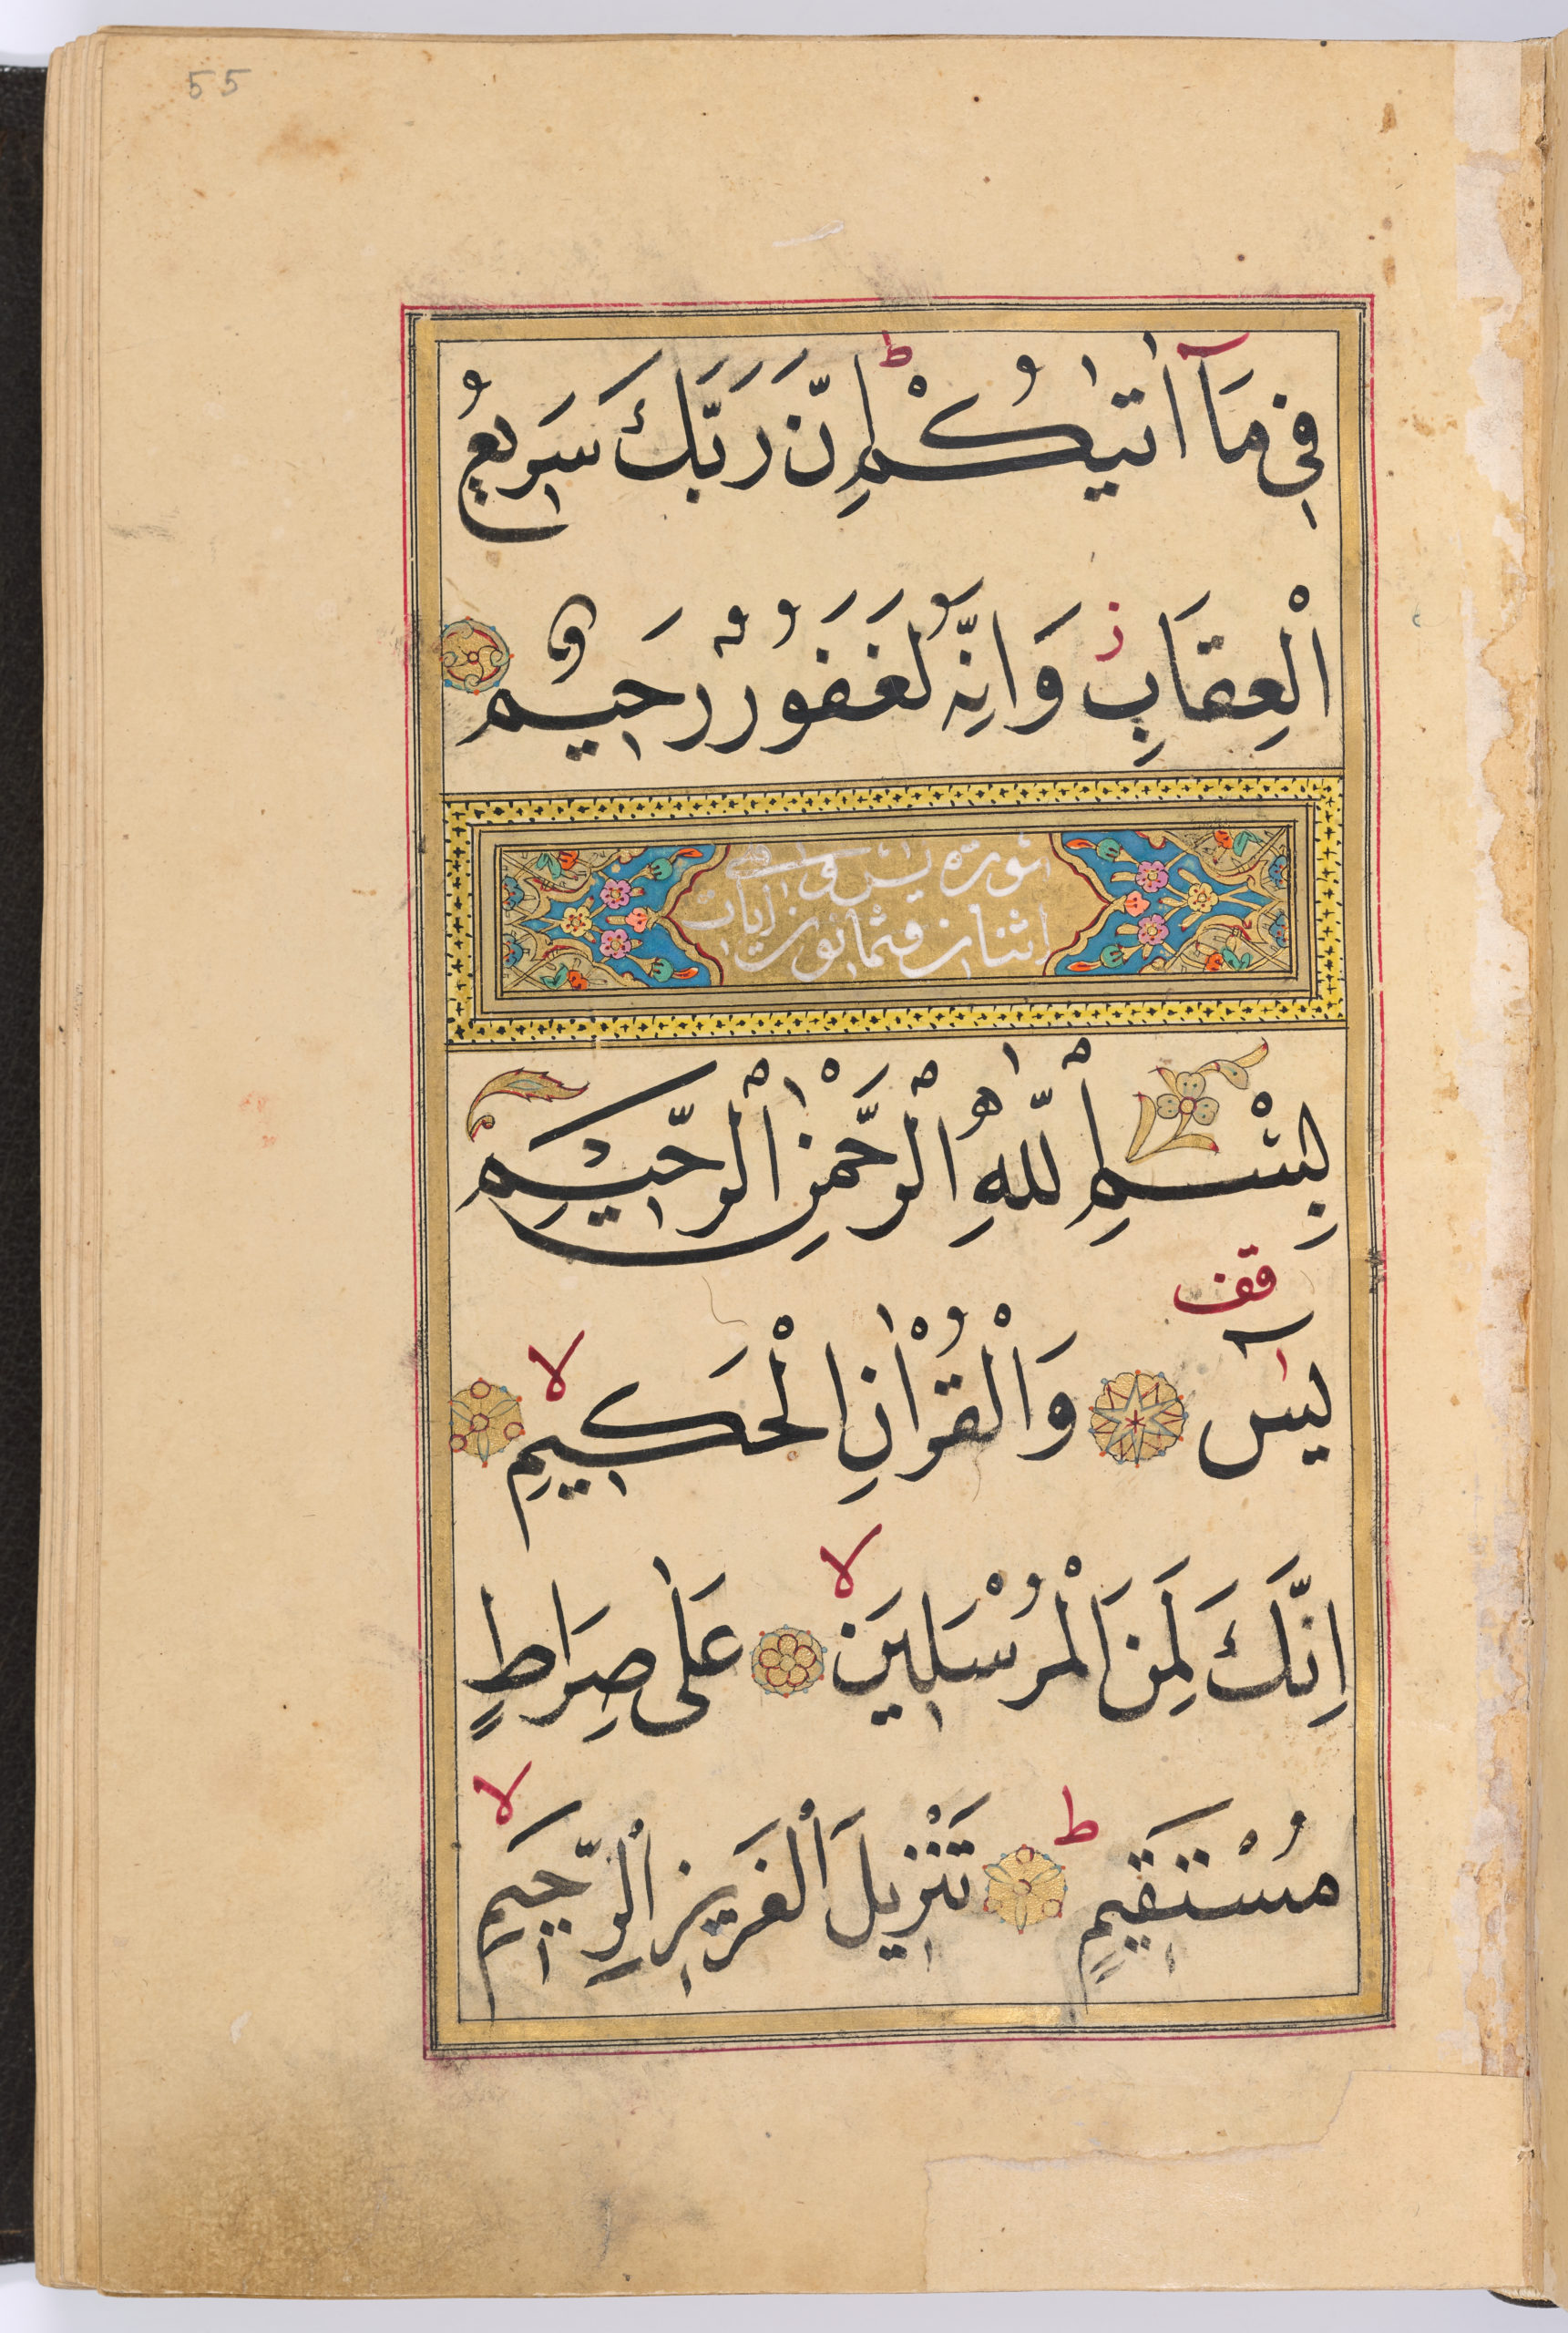 55
ط
فِي مَآ اٰتٰيكُمْ اِنَّ رَبَّكَ سَرِيعُ
ز
الْعِقَابِ وَاِنَّهُ لَغَفُورٌ رَحِيمٌ
سورة يس وهي
اثنان وثمانون ايات
بِسْمِ اللّٰهِ الْرَّحْمٰنِ الْرَّحِيمِ
قف
لا
يٰسٓ وَالْقُرْاٰنِ الْحَكِيمِ
لا
اِنَّكَ لَمِنَ الْمُرْسَلِينَ عَلٰى صِرَاطٍ
ط لا
مُسْتَقِيمٍ تَنْزِيلَ الْعَزِيزِ الْرَّحِيمِ